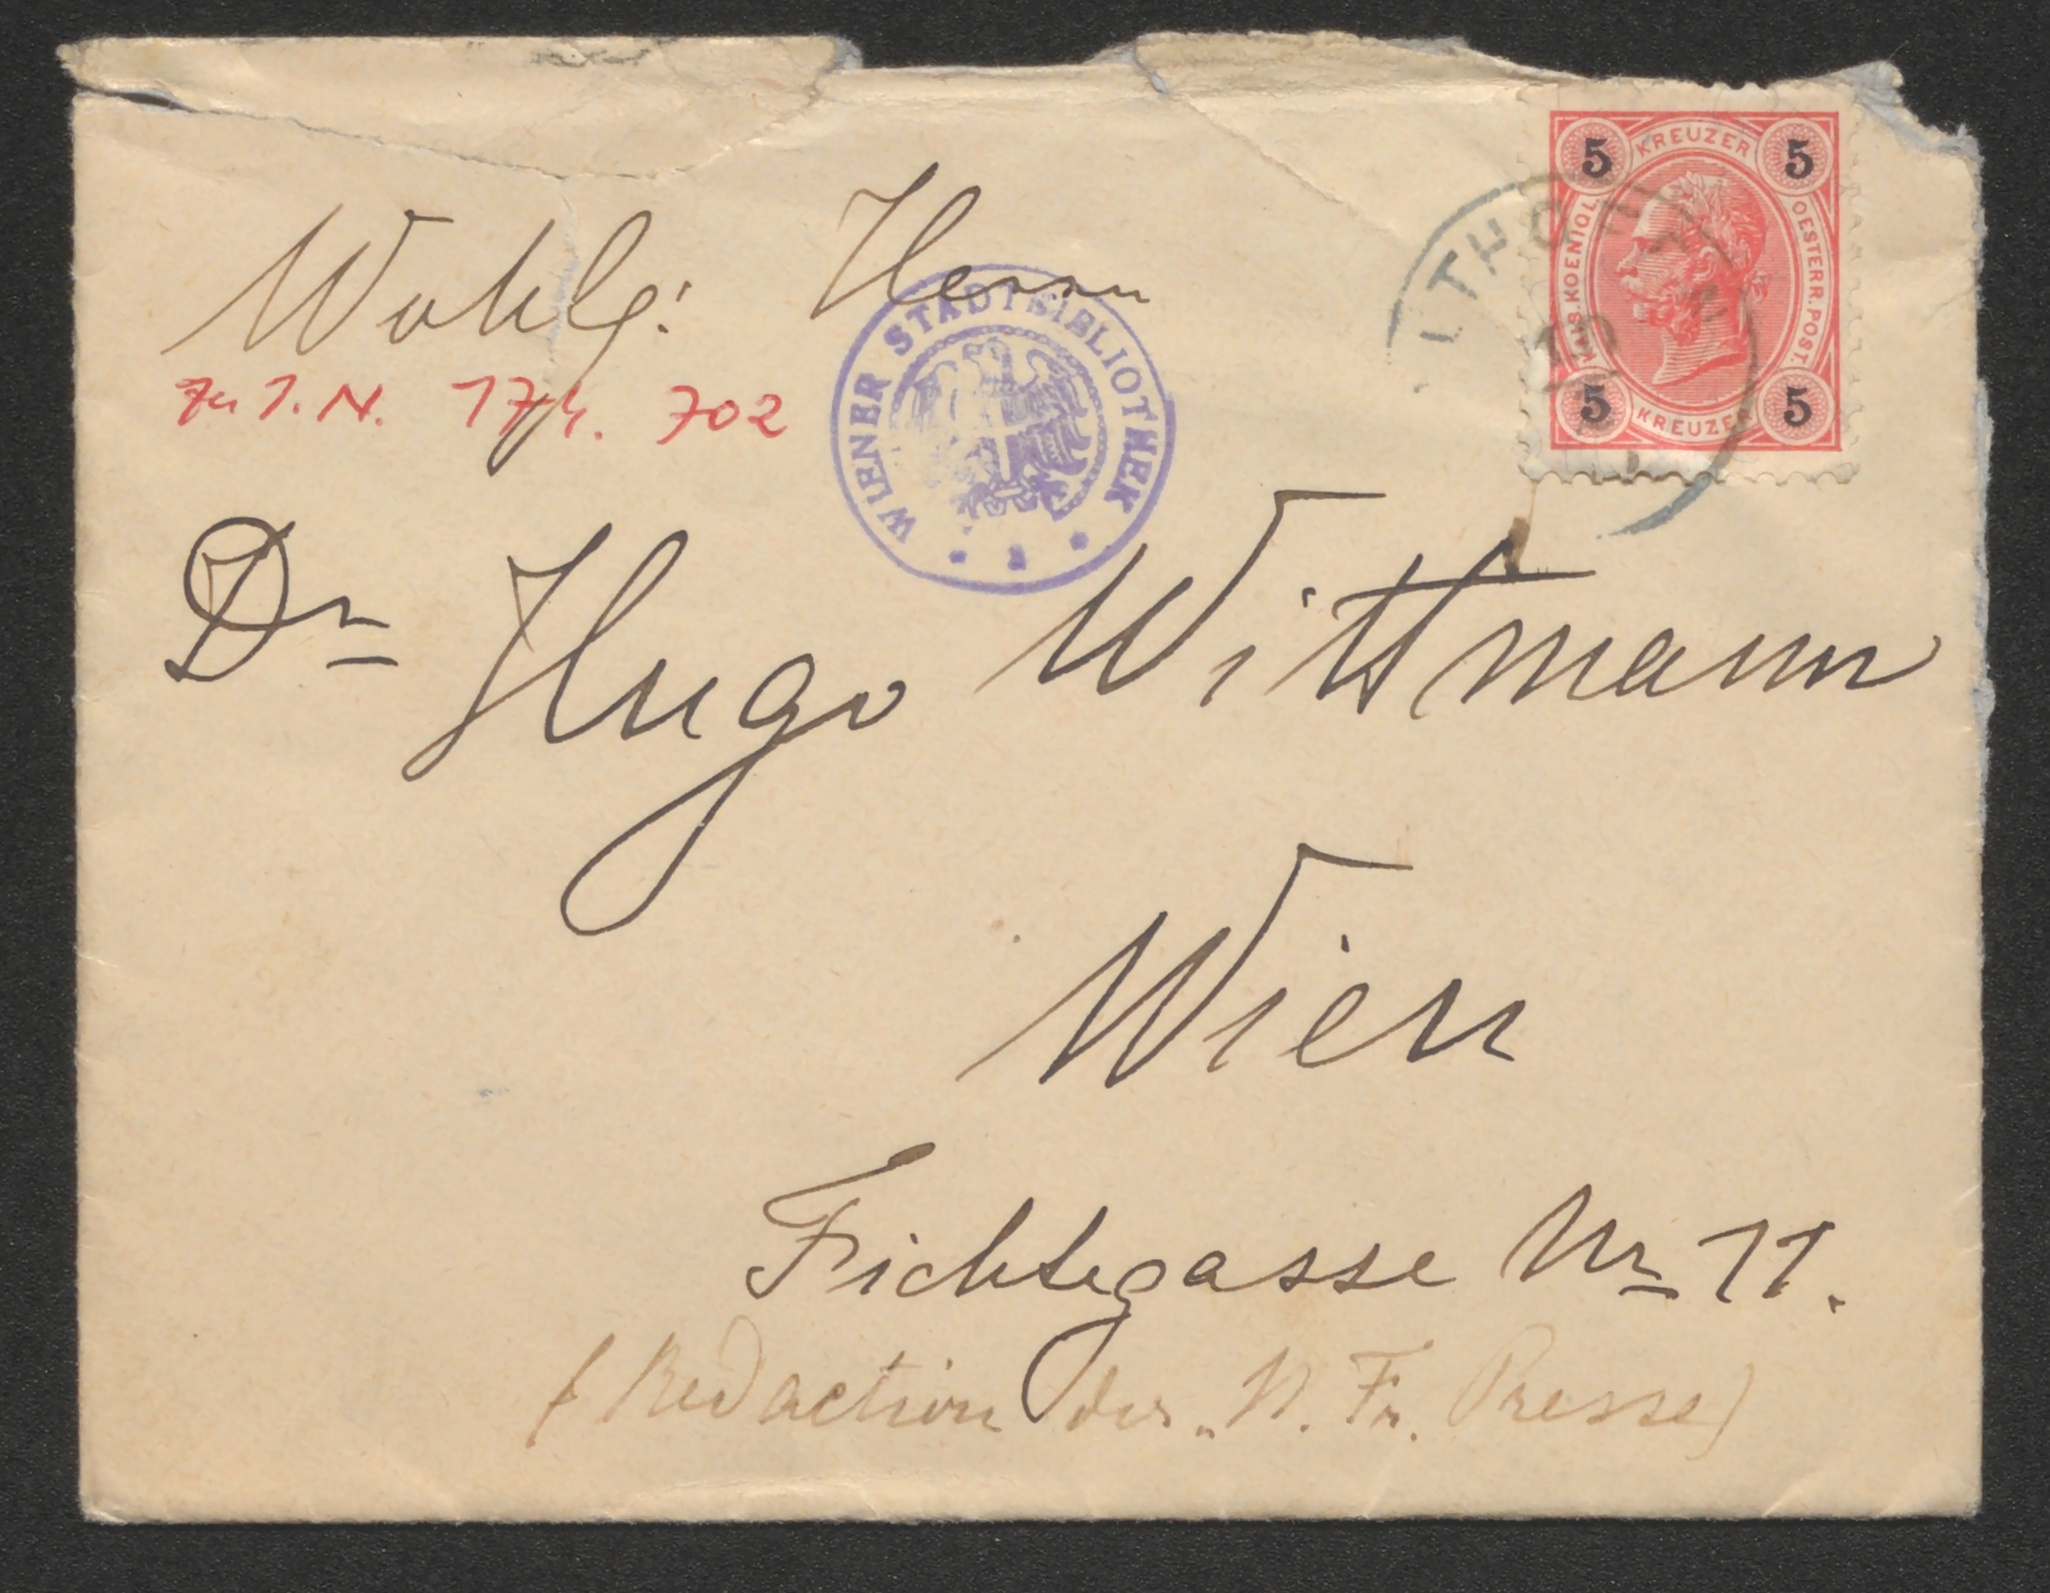 Wohlg: Herrn
Zu I.N. 174.702
WIENER STADTBIBLIOTHEK
5 KREUZER 5
KAIS. KOENIGL. OESTERR. POST.
5 KREUZER 5
Dr Hugo Wittmann
Wien
Fichtegasse Nr 11.
(Redaction der „N. Fr. Presse)